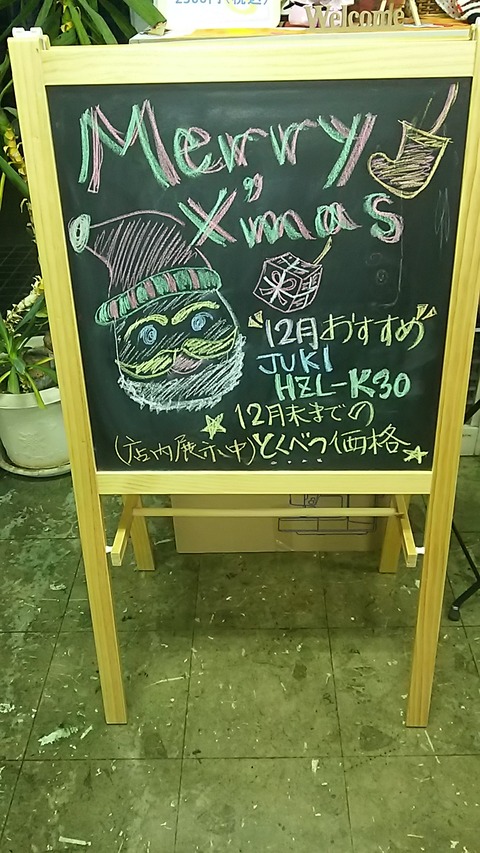 2500円(税込)
Welcome
Merry
X'mas
12月おすすめ
JUKI
HZL-K30
12月末までの
(店内展示中)とくべつ価格